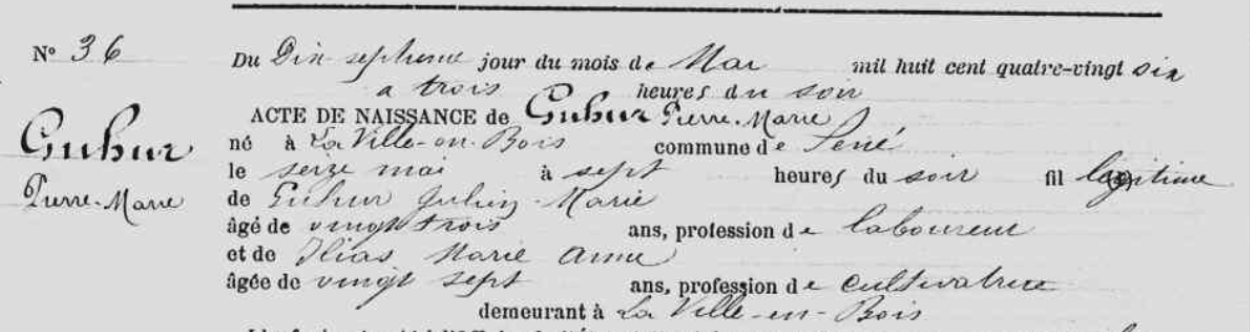 N° 36
Du Dix septieme jour du mois de Mai mil huit cent quatre-vingt six
a trois heures du soir
ACTE DE NAISSANCE de Guhur Pierre-Marie
Guhur
Pierre-Marie
né à La Ville-en-Bois commune de Séné
le seize mai à sept heures du soir fil légitime
de Guhur Julien-Marie
âgé de vingt trois ans, profession de laboureur
et de Marie Anne
âgée de vingt sept ans, profession de cultivatrice
demeurant à La Ville-en-Bois